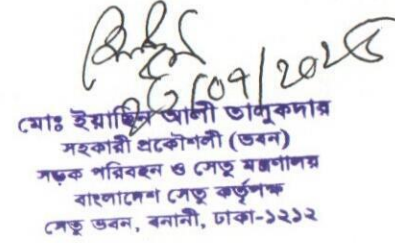 /07/2025
মোঃ ইয়াছিন আলী তালুকদার
সহকারী প্রকৌশলী (ভবন)
সড়ক পরিবহন ও সেতু মন্ত্রণালয়
বাংলাদেশ সেতু কর্তৃপক্ষ
সেতু ভবন, বনানী, ঢাকা-১২১২